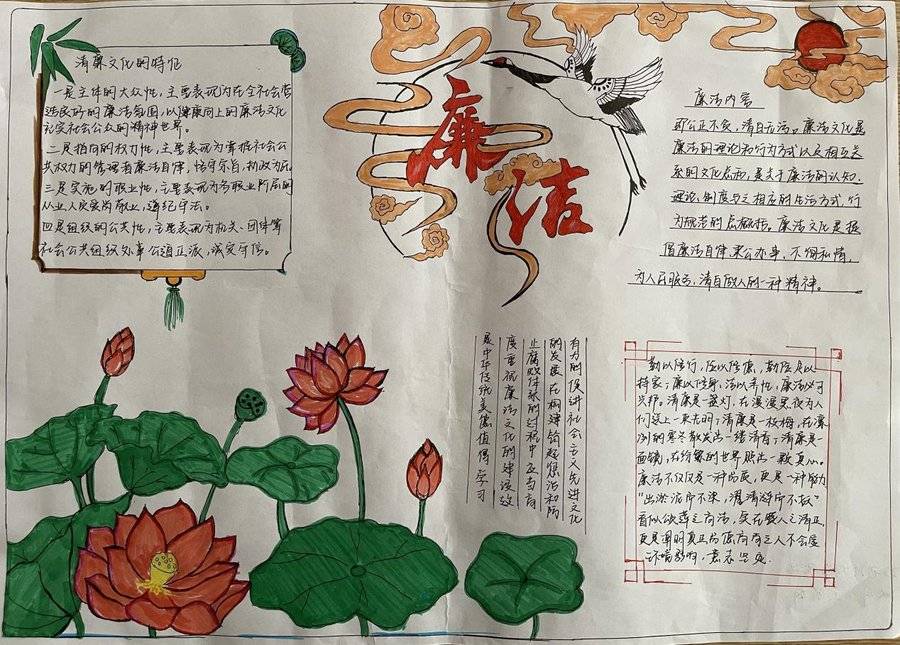 清廉文化的特征
一是主体的大众性，主要表现为在全社会营
造良好的廉洁氛围，以健康向上的廉洁文化
充实社会公众的精神世界。
二是指向的权力性，主要表现为掌握社会公
共权力的管理者廉洁自律，恪守宗旨，执政为民
三是实施的职业性，主要表现为各职业阶层的
从业人员爱岗敬业，遵纪守法。
四是组织的公共性，主要表现为机关、团体等
社会公共组织办事公道正派，诚实守信。
廉
洁
廉洁内容
即公正不贪，清白无污。廉洁文化是
廉洁的理论和行为方式以及相互关
系的文化总和，是关于廉洁的认知、
理论、制度与之相应的生活方式、行
为规范的总概括。廉洁文化是提
倡廉洁自律秉公办事，不徇私情，
为人民服务，清白做人的一种精神。
有力的促进社会主义先进文化
的发展在构建
止腐败体系的过程中应当高
度重视廉洁文化的建设故
是中华传统美德值得学习
勤以修行，俭以修德，勤俭足以
持家；廉以修身，洁以养性，廉洁必可
兴邦。清廉是一盏灯，在漫漫黑夜为人
们送上一束光明；清廉是一枝梅，在凛
冽的寒冬散发出一缕清香；清廉是一
面镜，在纷繁的世界照出一颗真心。
廉洁不仅仅是一种品质，更是一种魅力
"出淤泥而不染，濯清涟而不妖"
看似莲之高洁，实在人之清正
更是阐明真正高德高尚之人不会受
环境影响，意志